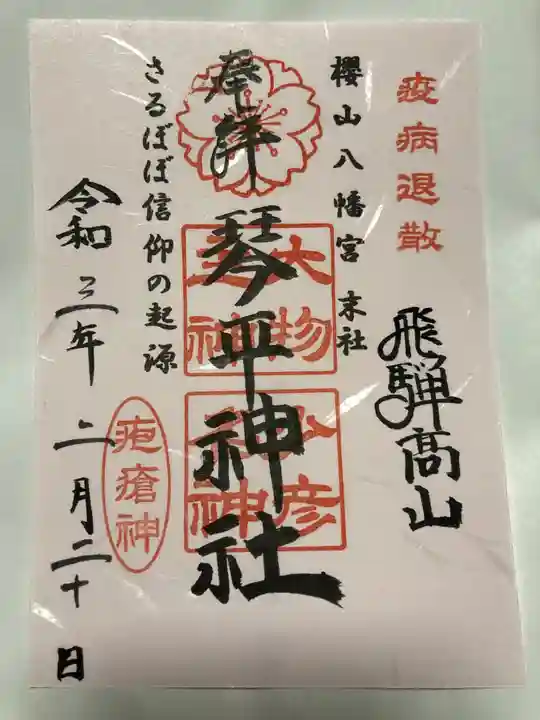 疫病退散
飛騨高山
櫻山八幡宮 末社
奉拝
琴平神社
大物主神
彦神
さるぼぼ信仰の起源
疱瘡神
令和三年 二月二十日